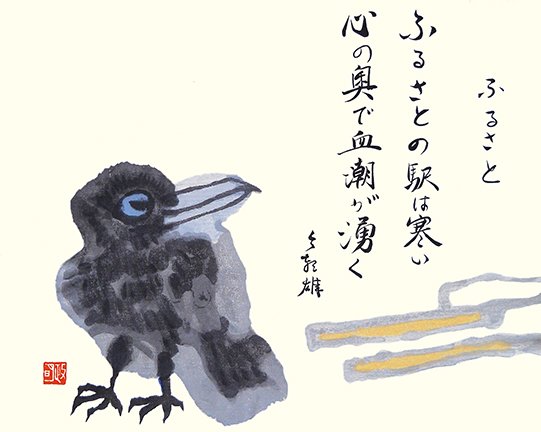 ふるさと
ふるさとの駅は寒い
心の奥で血潮が湧く